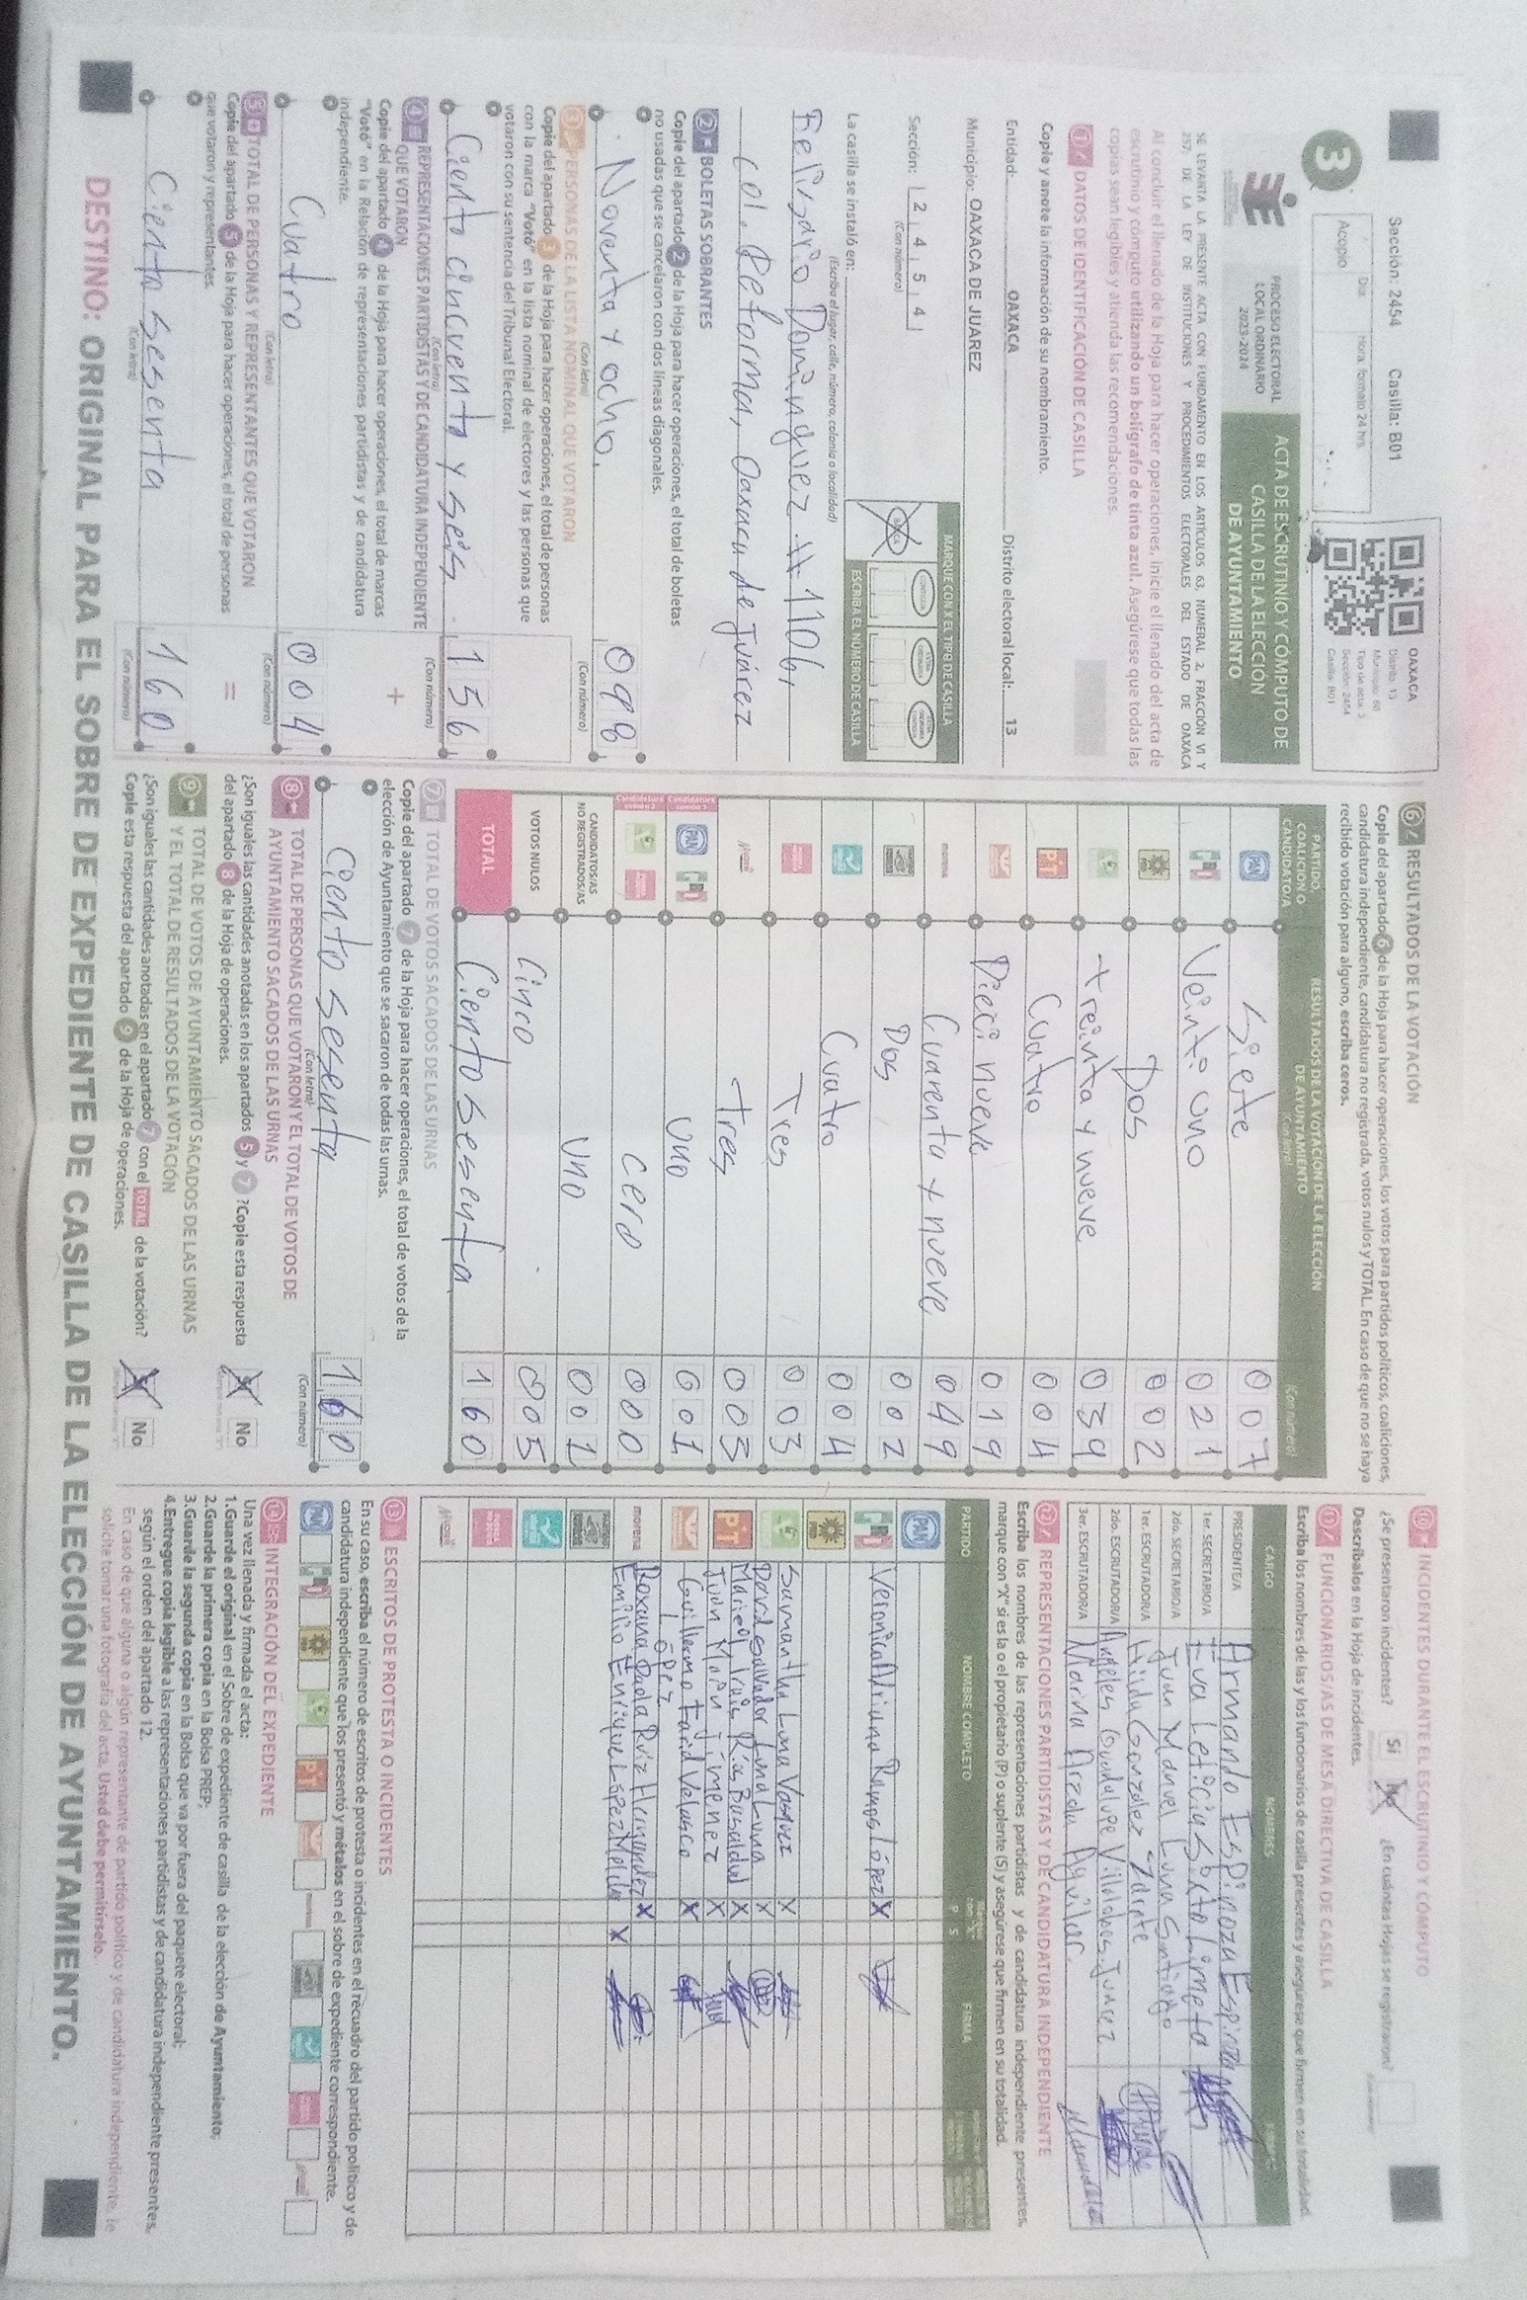 Sección: 2454 Casilla: B01
3
Día
Hora, formato 24 hrs
Acopio
OAXACA
Distrito: 13
Municipio: 60
Tipo de acta: 3
Sección: 2454
Casilla: B01
PROCESO ELECTORAL
LOCAL ORDINARIO
2023-2024
ACTA DE ESCRUTINIO Y CÓMPUTO DE
CASILLA DE LA ELECCIÓN
DE AYUNTAMIENTO
SE LEVANTA LA PRESENTE ACTA CON FUNDAMENTO EN LOS ARTÍCULOS 63, NUMERAL 2, FRACCIÓN VI Y
237; DE LA LEY DE INSTITUCIONES Y PROCEDIMIENTOS ELECTORALES DEL ESTADO DE OAXACA
Al concluir el llenado de la Hoja para hacer operaciones, inicie el llenado del acta de
escrutinio y cómputo utilizando un bolígrafo de tinta azul. Asegúrese que todas las
copias sean legibles y atienda las recomendaciones.
1 DATOS DE IDENTIFICACIÓN DE CASILLA
Copie y anote la información de su nombramiento.
Entidad: OAXACA Distrito electoral local: 13
Municipio: OAXACA DE JUAREZ
Sección: 2 4 5 4
(Con número)
MARQUE CON X EL TIPO DE CASILLA
ESCRIBA EL NÚMERO DE CASILLA
La casilla se instaló en:
(Escriba el lugar, calle, número, colonia o localidad)
Belisario Dominguez # 1106,
col. Reforma, Oaxaca de Juárez
2 BOLETAS SOBRANTES
Copie del apartado 2 de la Hoja para hacer operaciones, el total de boletas
no usadas que se cancelaron con dos líneas diagonales.
Noventa y ocho. 098
(Con letra) (Con número)
3 PERSONAS DE LA LISTA NOMINAL QUE VOTARON
Copie del apartado 3 de la Hoja para hacer operaciones, el total de personas
con la marca "Votó" en la lista nominal de electores y las personas que
votaron con su sentencia del Tribunal Electoral.
Ciento cincuenta y seis 156
(Con letra) (Con número)
4 REPRESENTACIONES PARTIDISTAS Y DE CANDIDATURA INDEPENDIENTE
QUE VOTARON
+
Copie del apartado 4 de la Hoja para hacer operaciones, el total de marcas
"Votó" en la Relación de representaciones partidistas y de candidatura
independiente.
Cuatro 004
(Con letra) (Con número)
5 TOTAL DE PERSONAS Y REPRESENTANTES QUE VOTARON
=
Copie del apartado 5 de la Hoja para hacer operaciones, el total de personas
que votaron y representantes.
Ciento sesenta 160
(Con letra) (Con número)
6 RESULTADOS DE LA VOTACIÓN
Copie del apartado 6 de la Hoja para hacer operaciones, los votos para partidos políticos, coaliciones,
candidatura independiente, candidatura no registrada, votos nulos y TOTAL. En caso de que no se haya
recibido votación para alguno, escriba ceros.
PARTIDO,
COALICIÓN O
CANDIDATO/A
RESULTADOS DE LA VOTACIÓN DE LA ELECCIÓN
DE AYUNTAMIENTO
(Con letra) (Con número)
PAN Siete 007
Veinti uno 021
Dos 002
treinta y nueve 039
PT Cuatro 004
Dieci nueve 019
morena Cuarenta y nueve 049
Dos 002
Cuatro 004
Tres 003
tres 003
PAN Uno 001
cero 000
CANDIDATOS/AS
NO REGISTRADOS/AS
Uno 001
VOTOS NULOS Cinco 005
TOTAL Ciento sesenta 160
7 TOTAL DE VOTOS SACADOS DE LAS URNAS
Copie del apartado 7 de la Hoja para hacer operaciones, el total de votos de la
elección de Ayuntamiento que se sacaron de todas las urnas.
Ciento sesenta 160
(Con letra) (Con número)
8 TOTAL DE PERSONAS QUE VOTARON Y EL TOTAL DE VOTOS DE
AYUNTAMIENTO SACADOS DE LAS URNAS
¿Son iguales las cantidades anotadas en los apartados 5 y 7 ?Copie esta respuesta
del apartado 8 de la Hoja de operaciones.
No
9 TOTAL DE VOTOS DE AYUNTAMIENTO SACADOS DE LAS URNAS
Y EL TOTAL DE RESULTADOS DE LA VOTACIÓN
¿Son iguales las cantidades anotadas en el apartado 7 con el TOTAL de la votación?
Copie esta respuesta del apartado 9 de la Hoja de operaciones.
No
10 INCIDENTES DURANTE EL ESCRUTINIO Y CÓMPUTO
¿Se presentaron incidentes? Sí No ¿En cuántas Hojas se registraron?
Descríbalos en la Hoja de incidentes.
11 FUNCIONARIOS/AS DE MESA DIRECTIVA DE CASILLA
Escriba los nombres de las y los funcionarios de casilla presentes y asegúrese que firmen en su totalidad.
CARGO NOMBRES
PRESIDENTE/A Armando Espinoza Espinoza
1er. SECRETARIO/A Eva Leticia Sixto Limeta
2do. SECRETARIO/A Juan Manuel Luna Santiago
1er. ESCRUTADOR/A Hilda Gonzalez Zarate
2do. ESCRUTADOR/A Angeles Guadalupe Villalobos Juarez
3er. ESCRUTADOR/A Marina Arzola Aguilar
12 REPRESENTACIONES PARTIDISTAS Y DE CANDIDATURA INDEPENDIENTE
Escriba los nombres de las representaciones partidistas y de candidatura independiente presentes,
marque con "X" si es la o el propietario (P) o suplente (S) y asegúrese que firmen en su totalidad.
PARTIDO NOMBRE COMPLETO P S FIRMA
PAN
Veronica Adriana Ramos López X
Samantha Luna Vasquez X
David Salvador Luna Luna X
PT Maricely Iraiz Ríos Basaldud X
Juan Morin Jimenez X
Guillermo Farid Velasco X
López
morena Roxana Paola Ruiz Hernandez X
Emilio Enrique López Molina X
13 ESCRITOS DE PROTESTA O INCIDENTES
En su caso, escriba el número de escritos de protesta o incidentes en el recuadro del partido político y de
candidatura independiente que los presentó y métalos en el sobre de expediente correspondiente.
PAN PT morena
14 INTEGRACIÓN DEL EXPEDIENTE
Una vez llenada y firmada el acta:
1.Guarde el original en el Sobre de expediente de casilla de la elección de Ayuntamiento;
2.Guarde la primera copia en la Bolsa PREP;
3.Guarde la segunda copia en la Bolsa que va por fuera del paquete electoral;
4.Entregue copia legible a las representaciones partidistas y de candidatura independiente presentes,
según el orden del apartado 12.
En caso de que alguna o algún representante de partido político y de candidatura independiente, le
solicite tomar una fotografía del acta, Usted debe permitírselo.
DESTINO: ORIGINAL PARA EL SOBRE DE EXPEDIENTE DE CASILLA DE LA ELECCIÓN DE AYUNTAMIENTO.